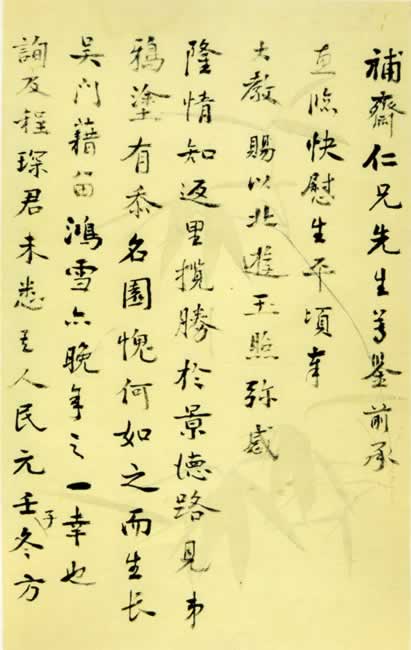 補齋仁兄先生尊鑒前承
直臨快慰生平頃奉
大教賜以北遊玉照弥感
隆情知返里攬勝於景德路見弟
鴉塗有忝名園愧何如之而生長
吳门藉留鴻雪亦晚年之一幸也
詢及程琛君未悉其人民元壬子冬方